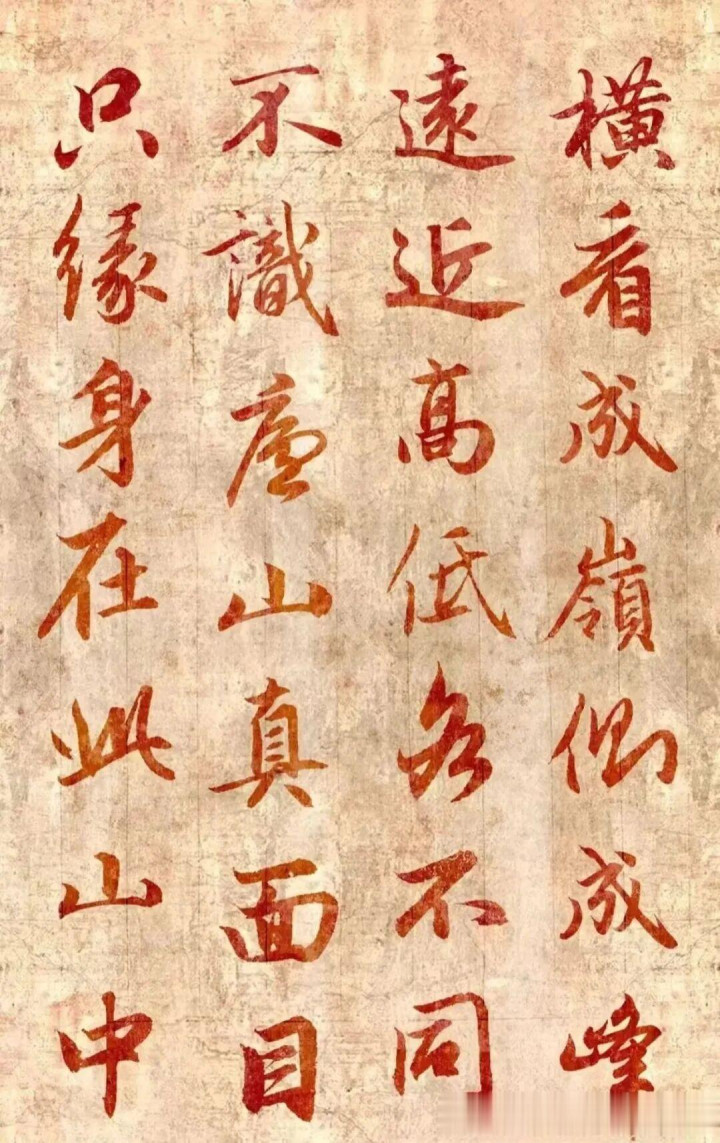 橫看成嶺側成峰
遠近高低各不同
不識廬山真面目
只緣身在此山中